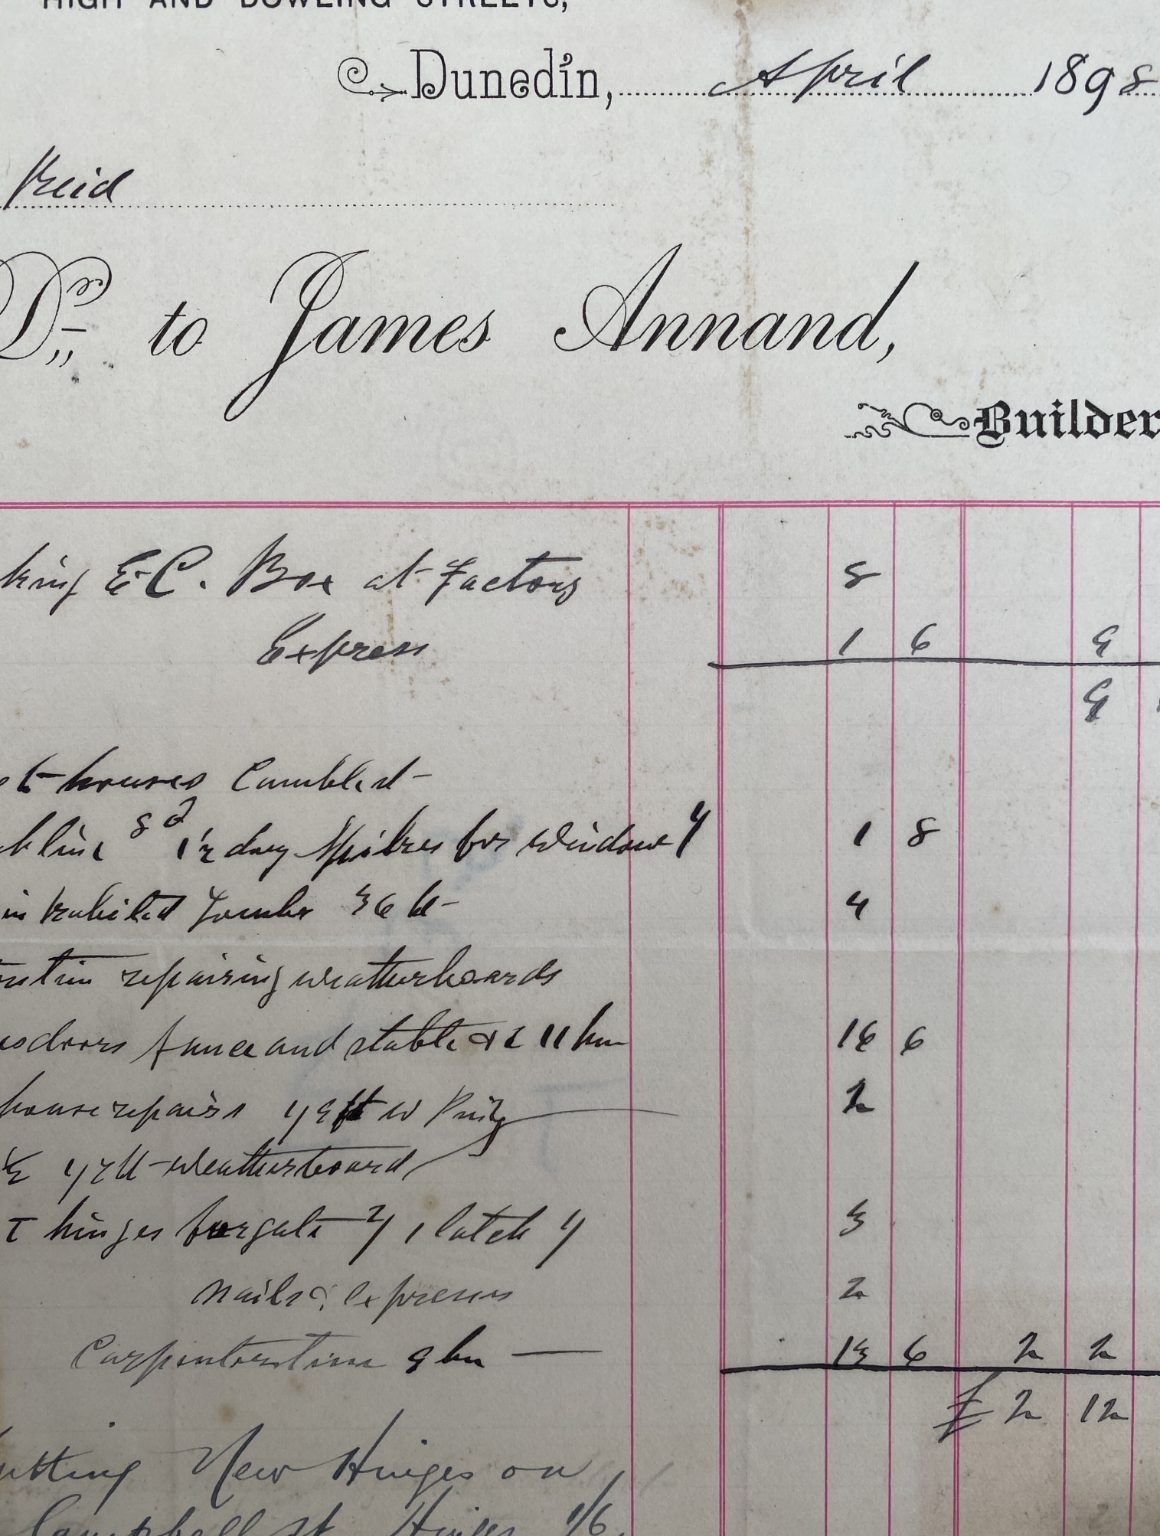 HIGH AND DOWLING STREETS,
Dunedin, April 1898
Reid
Dr. to James Annand,
Builder
king E C. Box at Factory 8
Express 1 6 9
9
houses Cumbld
8d 1/2 day Spikes for window 1 8
4
repairing weatherboards
doors fence and stable & 2 11 hrs 16 6
house repairs ft 2
weatherboard
T hinges for gate 2/ 1 latch 1/ 3
Nails & expresses 2
Carpenters time 9 hrs — 13 6 2 2
£ 2 12
utting New Hinges on
Campbell st Hinges 1/6.